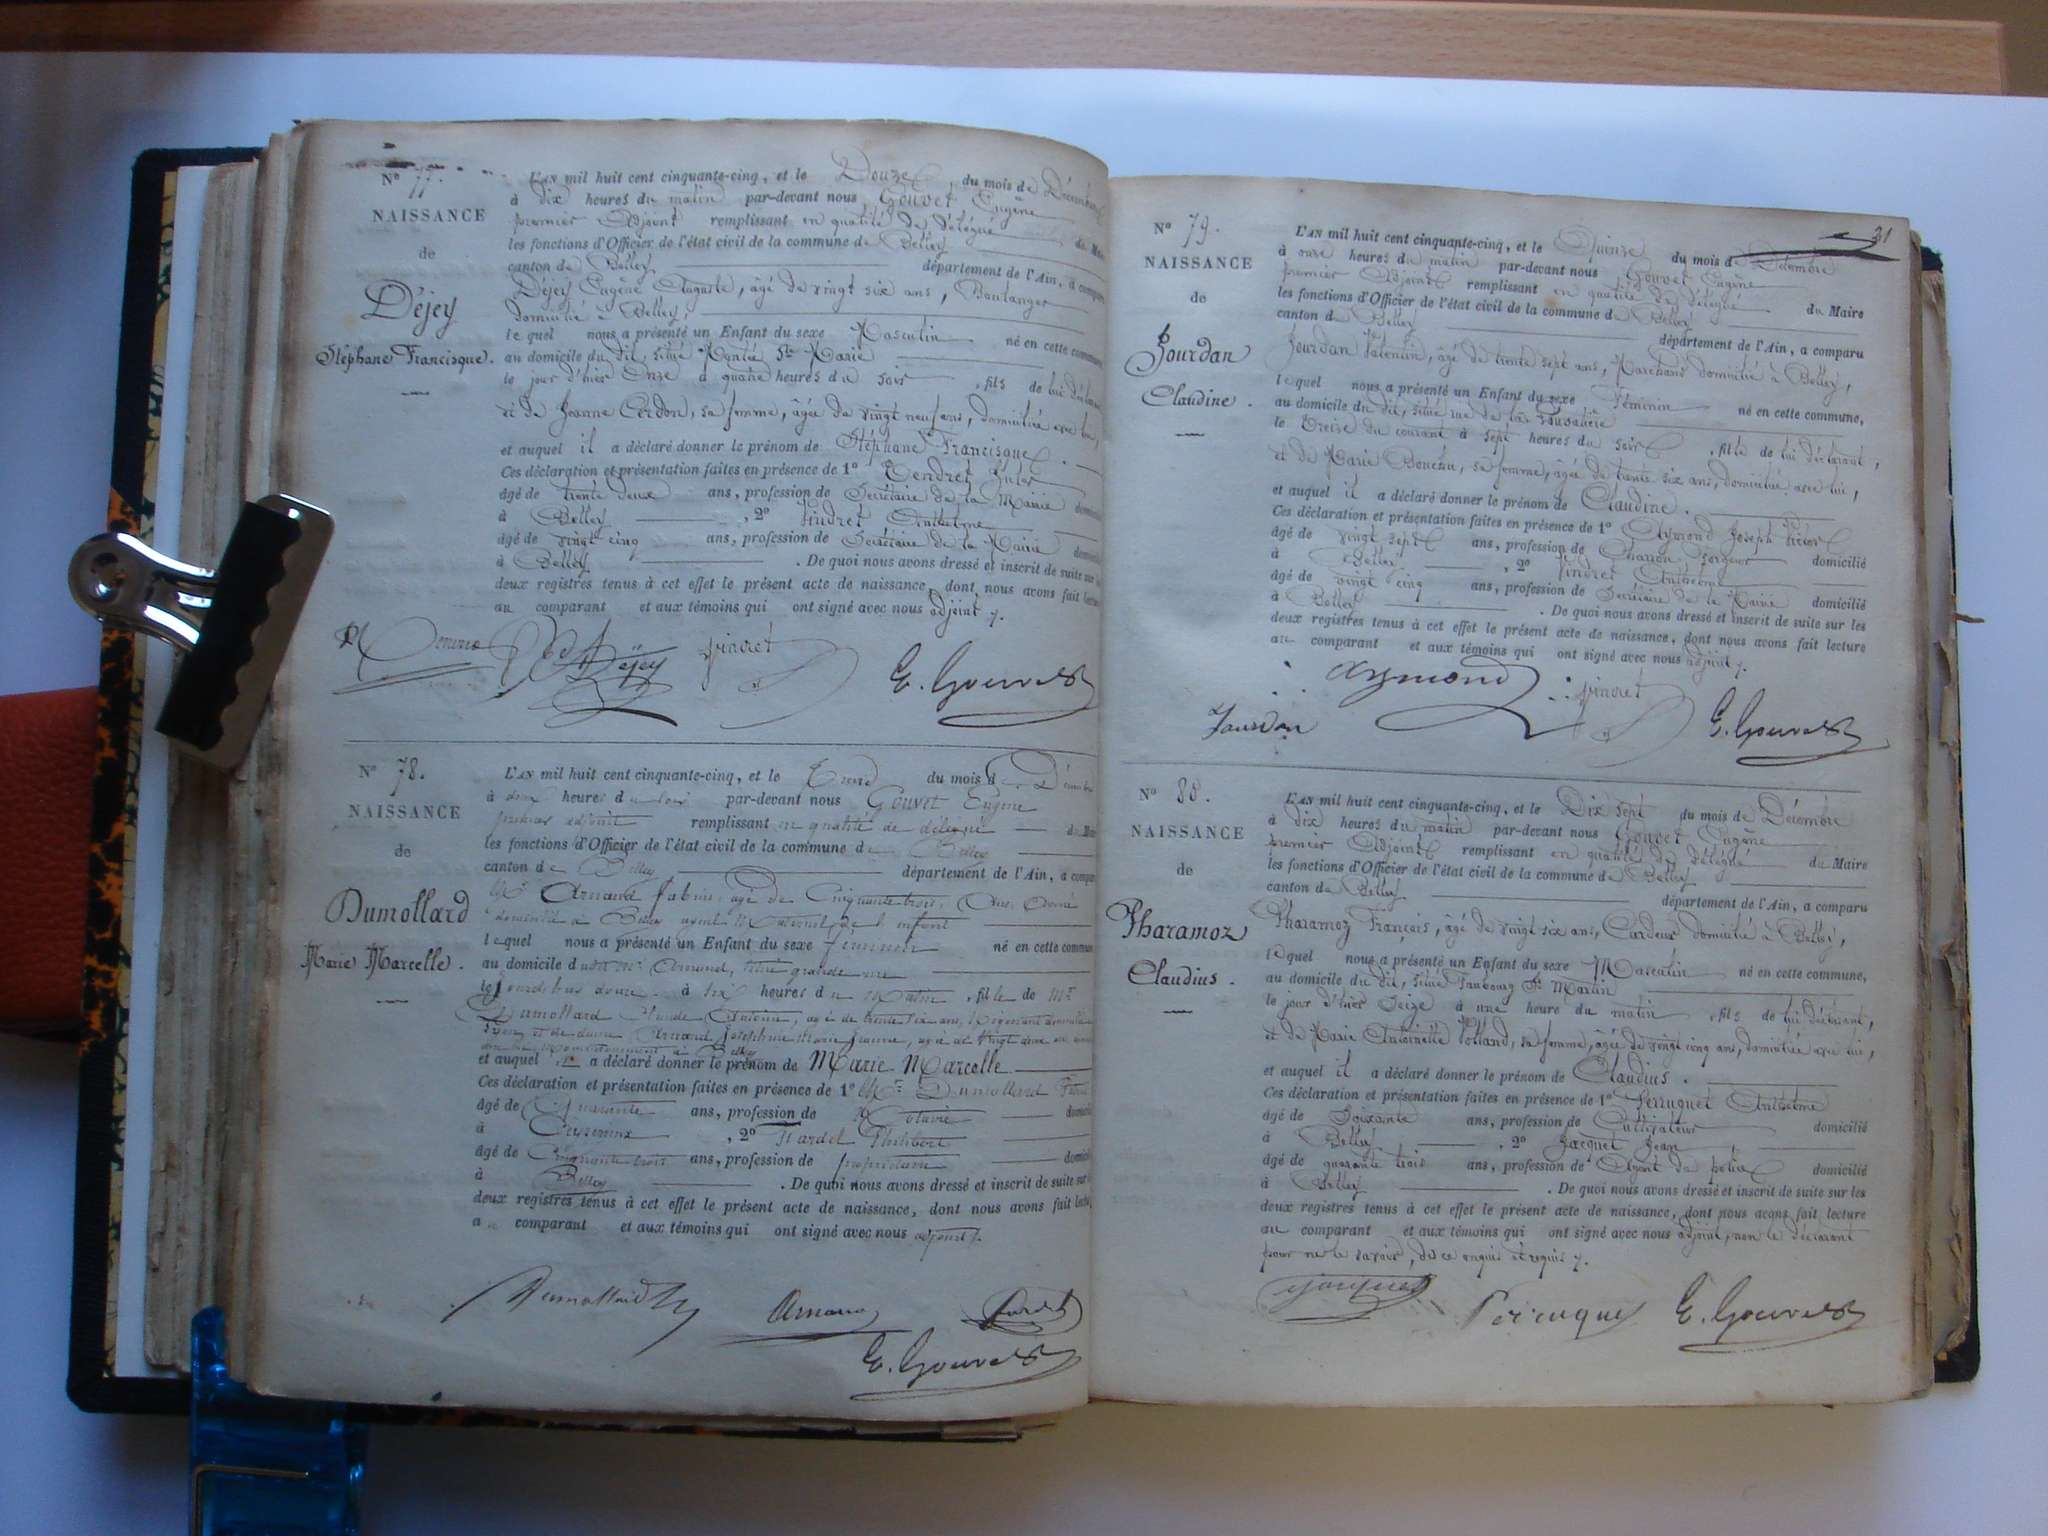 N° 77.
NAISSANCE
de
Déjey
Stéphane Francisque.
L'AN mil huit cent cinquante-cinq, et le Douze du mois de Décembre
à dix heures du matin par-devant nous Gouvet Eugène
premier Adjoint remplissant en qualité de délégué du Maire
les fonctions d'Officier de l'état civil de la commune de Belley
canton de Belley département de l'Ain, a comparu
Déjey Eugène Auguste, âgé de vingt six ans, Boulanger
domicilié à Belley,
lequel nous a présenté un Enfant du sexe Masculin né en cette commune
au domicile du dit, situé Montée Ste Marie
le jour d'hier Onze à quatre heures du soir, fils de lui déclarant
et de Jeanne Cerdon, sa femme, âgée de vingt neuf ans, domiciliée avec lui,
et auquel il a déclaré donner le prénom de Stéphane Francisque.
Ces déclaration et présentation faites en présence de 1° Tendret Jules
âgé de trente deux ans, profession de Secrétaire de la Mairie domicilié
à Belley, 2° Pindret Anthelme
âgé de vingt cinq ans, profession de Secrétaire de la Mairie domicilié
à Belley. De quoi nous avons dressé et inscrit de suite sur les
deux registres tenus à cet effet le présent acte de naissance, dont nous avons fait lecture
au comparant et aux témoins qui ont signé avec nous adjoint
Déjey pindret E. Gouvet
N° 78.
NAISSANCE
de
Dumollard
Marie Marcelle.
L'AN mil huit cent cinquante-cinq, et le Treize du mois de Décembre
à deux heures du soir par-devant nous Gouvet Eugène
premier adjoint remplissant en qualité de délégué du Maire
les fonctions d'Officier de l'état civil de la commune de Belley
canton de Belley département de l'Ain, a comparu
Mr Arnaud Fabin, agé de Cinquante trois, Ans, Avoué
domicilié à Belley ayeul Maternel de l'enfant
lequel nous a présenté un Enfant du sexe féminin né en cette commune
au domicile dudit Mr Arnaud, situé grande rue
le jourdhui à six heures du Matin, fille de Mr
Dumollard Claude Antoine, agé de trente six ans,
Lyon, et de dame Arnaud Joséphine Marie Jeanne, agée de Vingt deux
à Belley
et auquel il a déclaré donner le prénom de Marie Marcelle
Ces déclaration et présentation faites en présence de 1° Mr Dumollard
âgé de Quarante ans, profession de Notaire domicilié
à Ceyzerieux, 2° Hardel Philibert
âgé de Cinquante trois ans, profession de propriétaire domicilié
à Belley. De quoi nous avons dressé et inscrit de suite sur les
deux registres tenus à cet effet le présent acte de naissance, dont nous avons fait lecture
au comparant et aux témoins qui ont signé avec nous adjoint
Dumollard Arnaud
E. Gouvet
31
N° 79.
NAISSANCE
de
Jourdan
Claudine.
L'AN mil huit cent cinquante-cinq, et le Quinze du mois de Décembre
à onze heures du matin par-devant nous Gouvet Eugène
premier Adjoint remplissant en qualité de délégué du Maire
les fonctions d'Officier de l'état civil de la commune de Belley
canton de Belley département de l'Ain, a comparu
Jourdan Valentin, âgé de trente sept ans, Marchand domicilié à Belley,
lequel nous a présenté un Enfant du sexe Féminin né en cette commune,
au domicile du dit, situé rue de la
le treize du courant à sept heures du soir, fille de lui déclarant,
et de Marie, sa femme, âgée de trente six ans, domiciliée avec lui,
et auquel il a déclaré donner le prénom de Claudine.
Ces déclaration et présentation faites en présence de 1° Aymond Joseph
âgé de vingt sept ans, profession de Charron forgeur domicilié
à Belley, 2° Pindret Anthelme
âgé de vingt cinq ans, profession de Secrétaire de la Mairie domicilié
à Belley. De quoi nous avons dressé et inscrit de suite sur les
deux registres tenus à cet effet le présent acte de naissance, dont nous avons fait lecture
au comparant et aux témoins qui ont signé avec nous adjoint
Aymond pindret
Jourdan E. Gouvet
N° 80.
NAISSANCE
de
Pharamoz
Claudius.
L'AN mil huit cent cinquante-cinq, et le Dix sept du mois de Décembre
à dix heures du matin par-devant nous Gouvet Eugène
premier Adjoint remplissant en qualité de délégué du Maire
les fonctions d'Officier de l'état civil de la commune de Belley
canton de Belley département de l'Ain, a comparu
Pharamoz François, âgé de vingt six ans, Cardeur domicilié à Belley,
lequel nous a présenté un Enfant du sexe Masculin né en cette commune,
au domicile du dit, situé Faubourg St Martin
le jour d'hier Seize à une heure du matin, fils de lui déclarant,
et de Marie Antoinette Rolland, sa femme, âgée de vingt cinq ans, domiciliée avec lui,
et auquel il a déclaré donner le prénom de Claudius.
Ces déclaration et présentation faites en présence de 1° Perruquet Anthelme
âgé de Soixante ans, profession de Cultivateur domicilié
à Belley, 2° Jacquet Jean
âgé de quarante trois ans, profession de Agent de police domicilié
à Belley. De quoi nous avons dressé et inscrit de suite sur les
deux registres tenus à cet effet le présent acte de naissance, dont nous avons fait lecture
au comparant et aux témoins qui ont signé avec nous adjoint, non le déclarant
pour ne le savoir, de ce enquis et requis
Jacquet Perruquet E. Gouvet